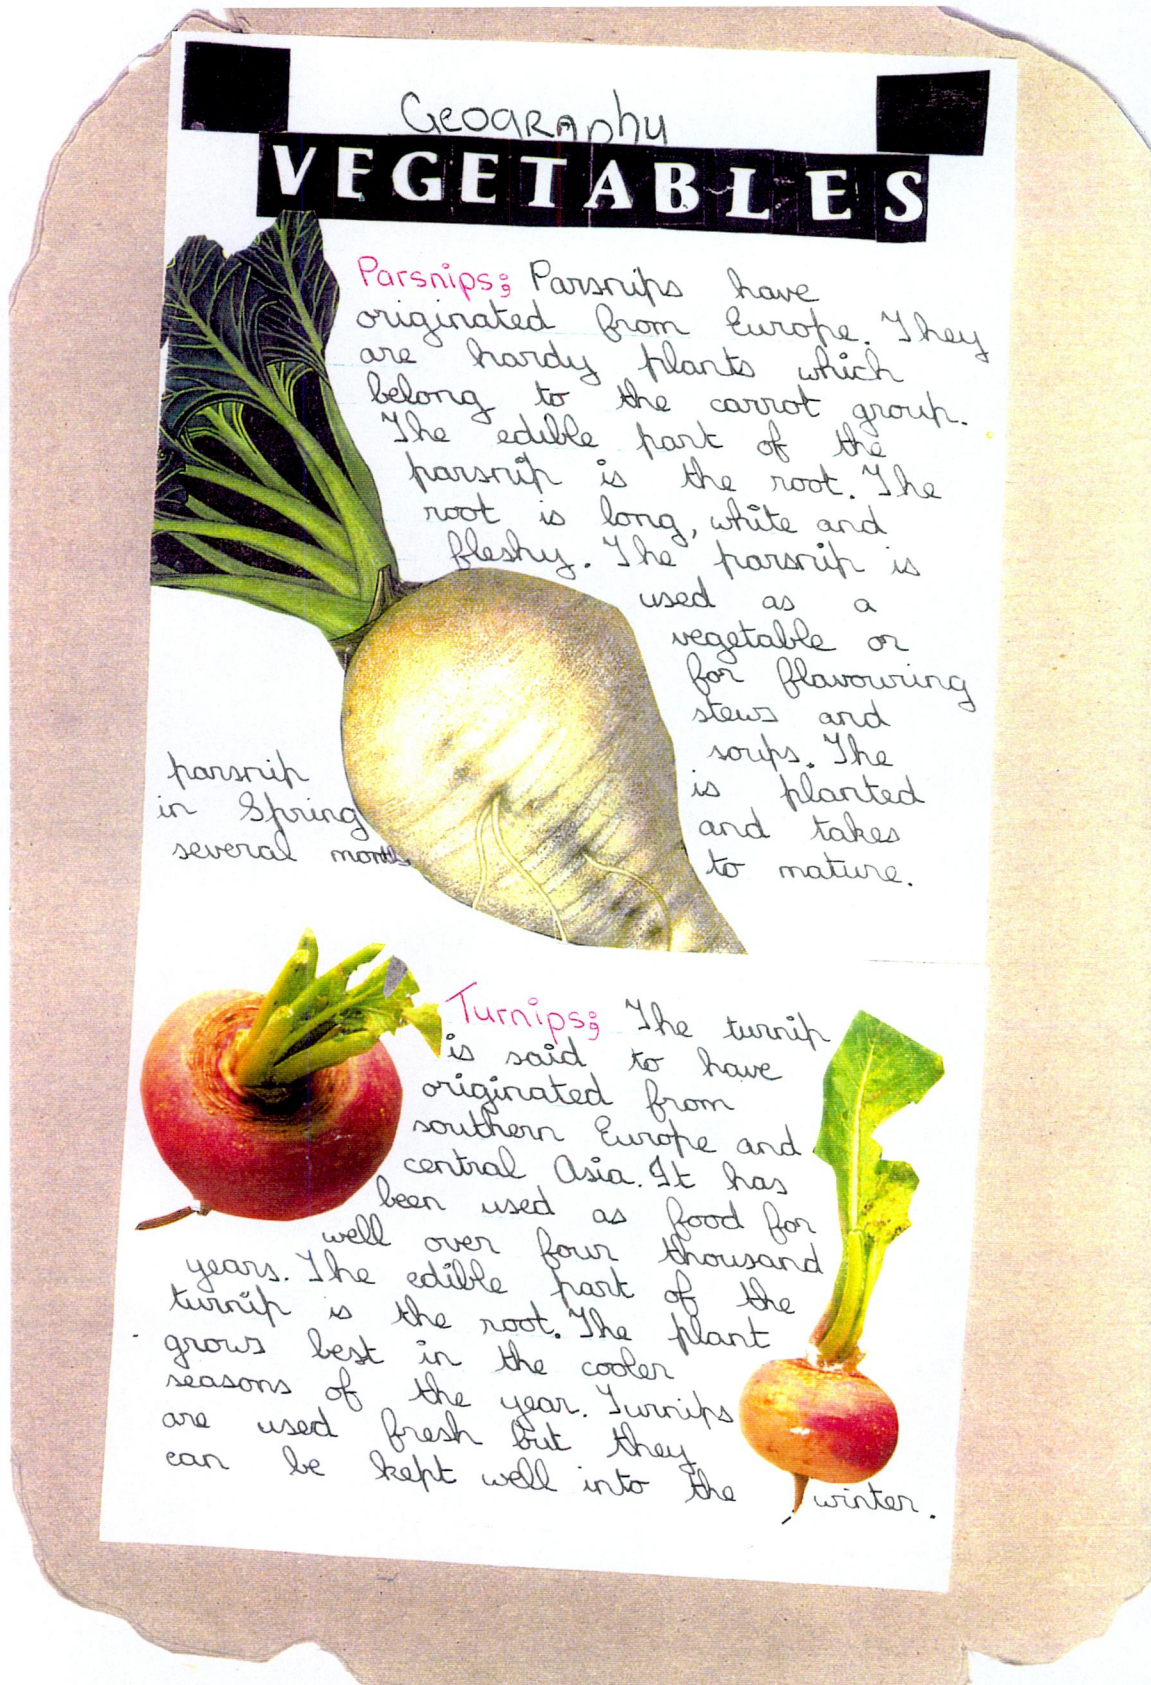 Geography
VEGETABLES
Parsnips; Parsnips have
originated from Europe. They
are hardy plants which
belong to the carrot group.
The edible part of the
parsnip is the root. The
root is long, white and
fleshy. The parsnip is
used as a
vegetable or
for flavouring
stews and
soups. The
parsnip is planted
in Spring and takes
several months to mature.
Turnips; The turnip
is said to have
originated from
southern Europe and
central Asia. It has
been used as food for
well over four thousand
years. The edible part of the
turnip is the root. The plant
grows best in the cooler
seasons of the year. Turnips
are used fresh but they
can be kept well into the winter.